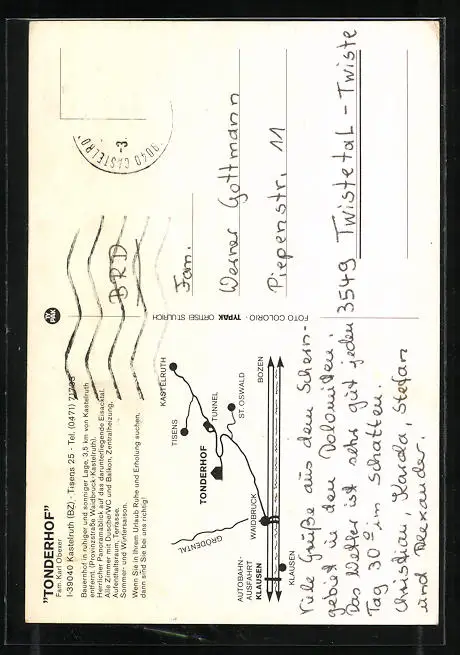 "TONDERHOF"
Fam Karl Obexer
I-39040 Kastelruth (BZ) · Tisens 25 · Tel. (0471)
Bauernhof in ruhiger und sonniger Lage, 3,5 km von Kastelruth
entfernt. (Provinzstraße Waidbruck-Kastelruth).
Herrlicher Panoramablick auf das darunterliegende Eisacktal.
Alle Zimmer mit Dusche/WC und Balkon, Zentralheizung,
Aufenthaltsraum, Terrasse.
Sommer- und Wintersaison.
Wenn Sie in Ihrem Urlaub Ruhe und Erholung suchen,
dann sind Sie bei uns richtig!
KASTELRUTH
TISENS
TUNNEL
ST. OSWALD
TONDERHOF
BOZEN
GRÖDENTAL
WAIDBRUCK
AUTOBAHN-
AUSFAHRT
KLAUSEN
KLAUSEN
Viele Grüße aus dem Schlern-
gebiet in den Dolomiten!
Das Wetter ist sehr gut jeden
Tag 30° im Schatten.
Christian, Karda, Stefan
und Alexander.
FOTO COLORIO · TYPAK ORTISEI ST.ULRICH
39040 CASTELRO
-3.
BRD
Fam.
Werner Gottmann
Piepenstr. 11
3549 Twistetal - Twiste